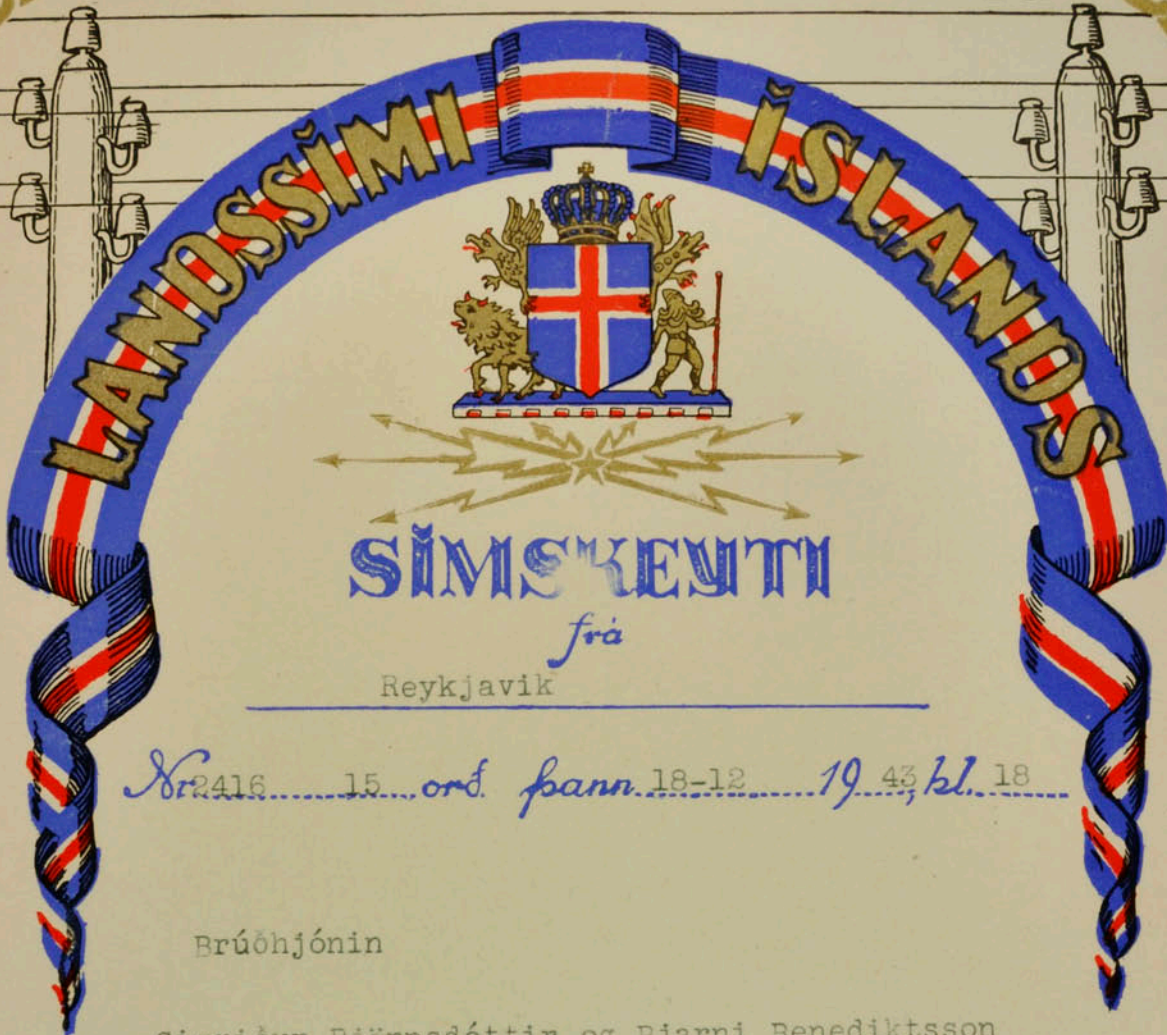 LANDSSÍMI ÍSLANDS
SÍMSKEYTI
frá
Reykjavik
Nr. 2416 15 orð. þann 18-12 19 43, kl. 18
Brúðhjónin
og Bjarni Benediktsson